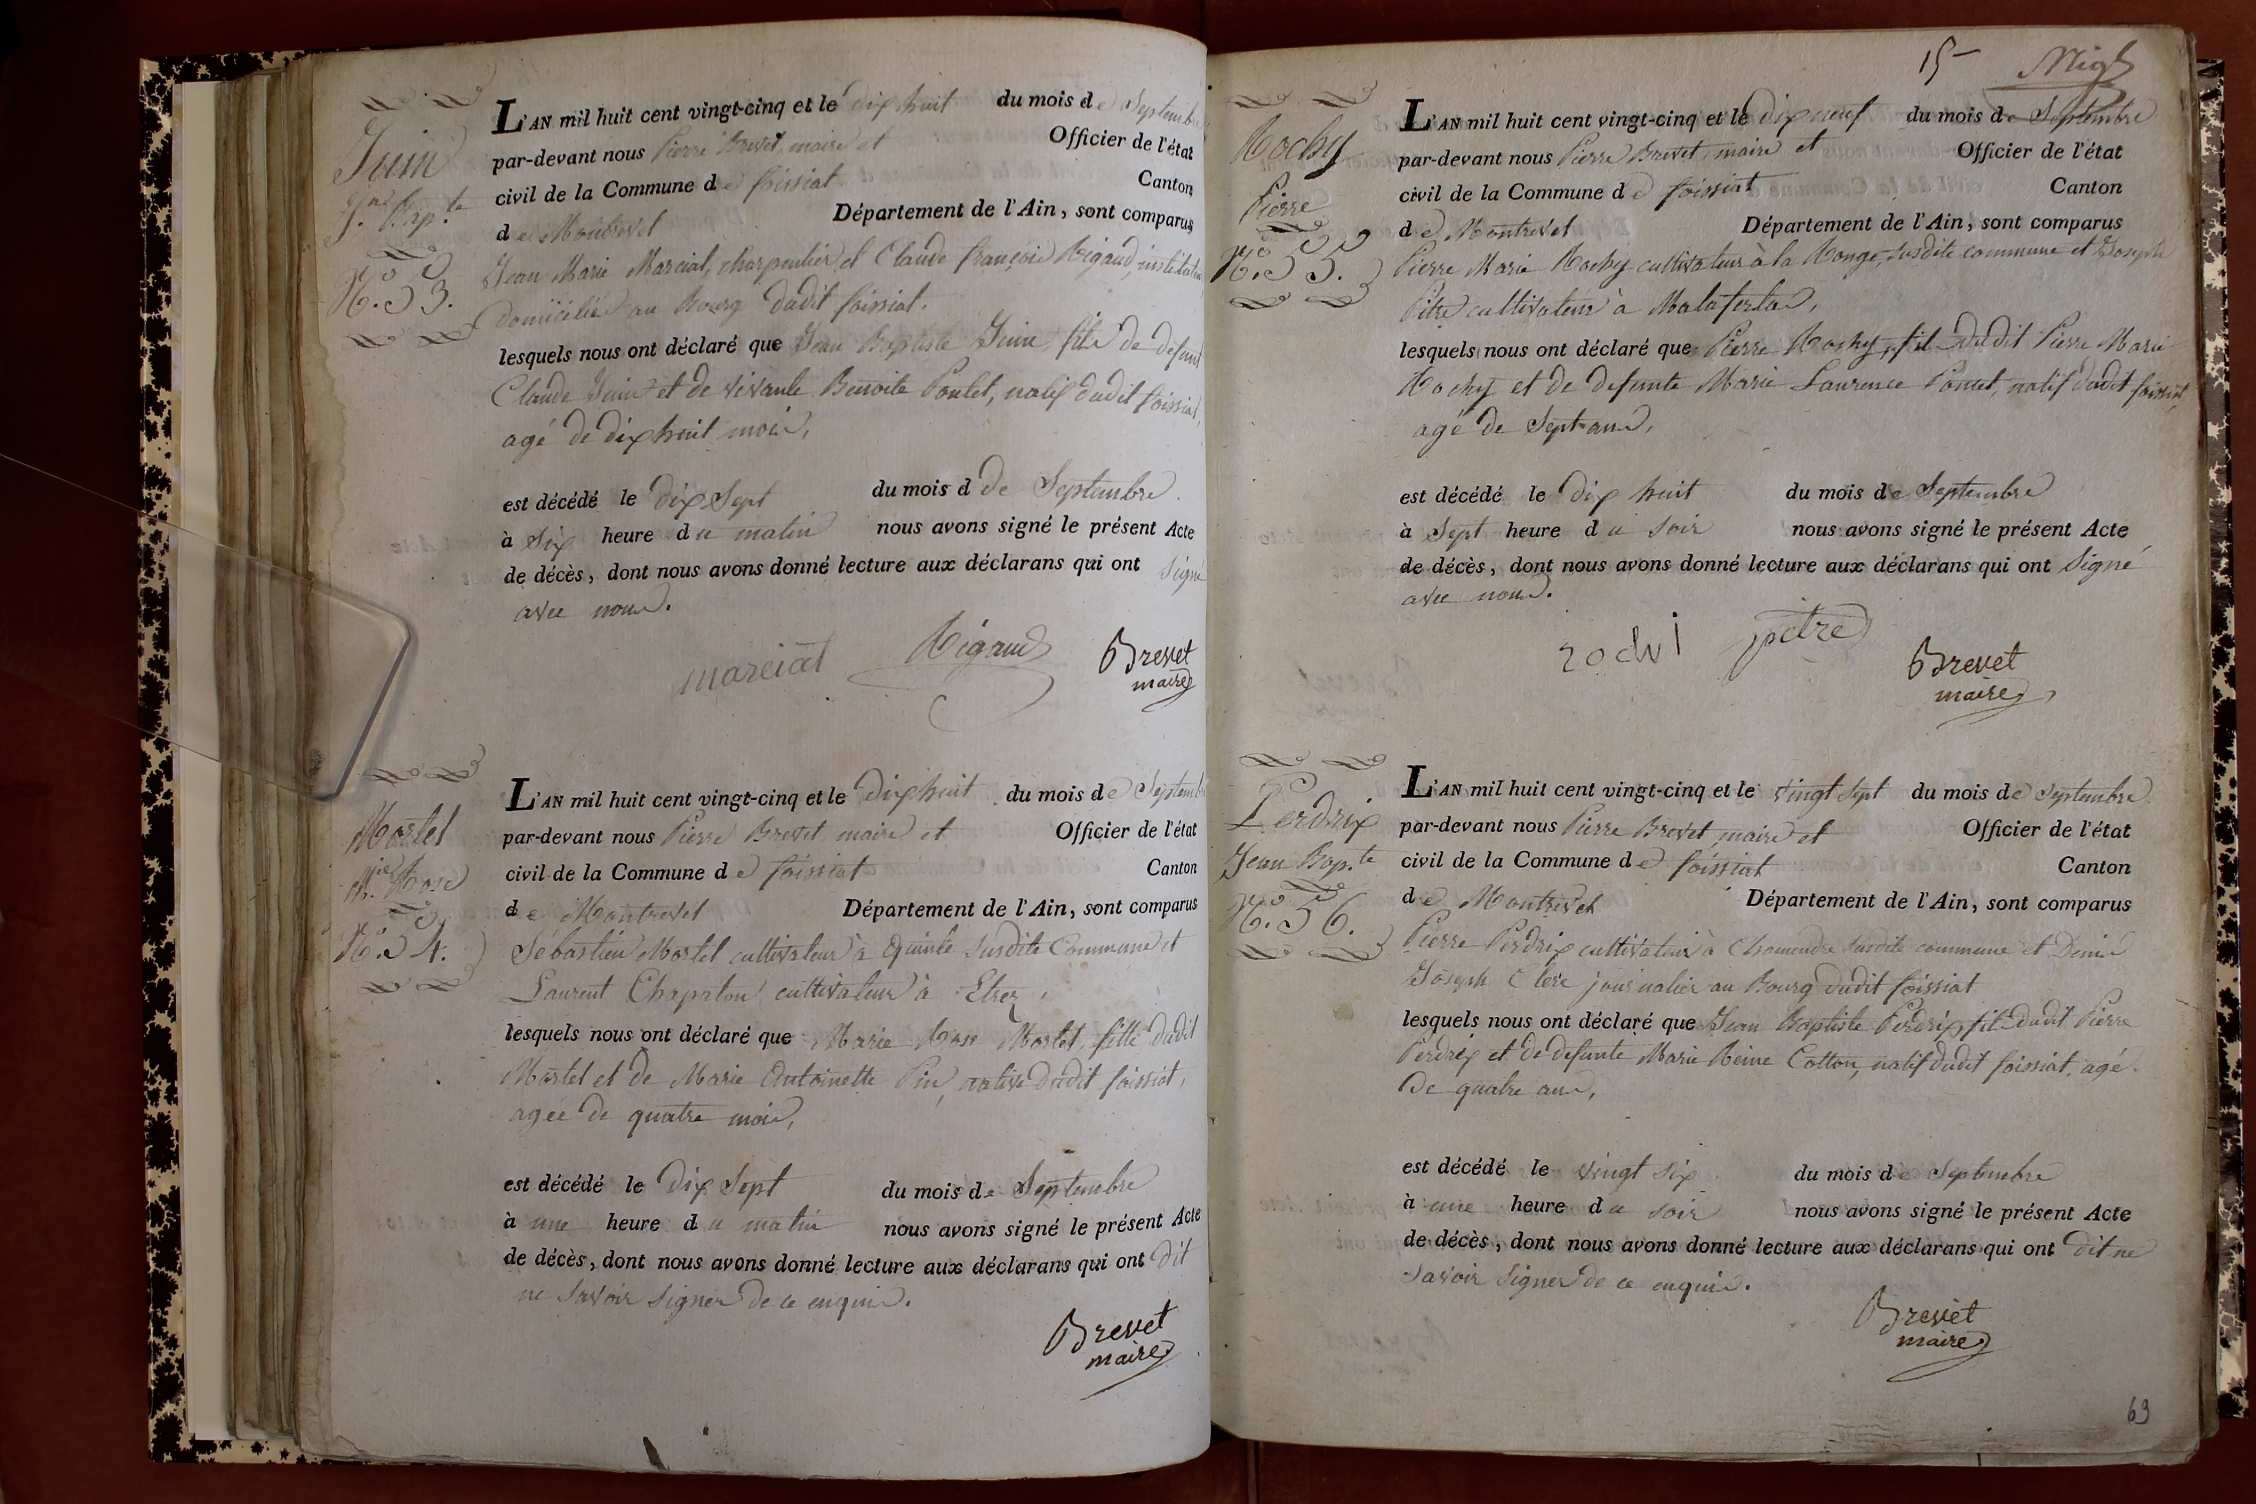 Juin
Jn. Bap.te
N.o 53.
L'AN mil huit cent vingt-cinq et le dix huit du mois de Septembre
par-devant nous Pierre Brevet, maire et Officier de l'état
civil de la Commune de foissiat Canton
de Montrevel Département de l'Ain, sont comparus
Jean Marie Marcial, charpentier et Claude françois Rigaud, instituteur
domiciliés au Bourg dudit foissiat.
lesquels nous ont déclaré que Jean Baptiste Juin fils de defunt
Claude Juin et de vivante Benoite Poulet, natif dudit foissiat,
agé de dix huit mois,
est décédé le dix Sept du mois d de Septembre
à Six heure du matin nous avons signé le présent Acte
de décès, dont nous avons donné lecture aux déclarans qui ont signé
avec nous.
marcial Rigaud Brevet
maire
Mortel
M.ie Rose
N.o 54.
L'AN mil huit cent vingt-cinq et le dix huit du mois de Septembre
par-devant nous Pierre Brevet maire et Officier de l'état
civil de la Commune de foissiat Canton
de Montrevel Département de l'Ain, sont comparus
Sébastien Mortel cultivateur à Quinte Susdite Commune et
Laurent Chapaton cultivateur à Etrez,
lesquels nous ont déclaré que Marie Rose Mortel, fille dudit
Mortel et de Marie Antoinette Pin, native dudit foissiat,
agée de quatre mois,
est décédé le dix Sept du mois de Septembre
à une heure du matin nous avons signé le présent Acte
de décès, dont nous avons donné lecture aux déclarans qui ont dit
ne Savoir Signer de ce enquis.
Brevet
maire
15
Rochy
Pierre
N.o 55.
L'AN mil huit cent vingt-cinq et le dix neuf du mois de Septembre
par-devant nous Pierre Brevet, maire et Officier de l'état
civil de la Commune de foissiat Canton
de Montrevel Département de l'Ain, sont comparus
Pierre Marie Rochy cultivateur à la Ronge, susdite commune et Joseph
Pitre cultivateur à Malaferta,
lesquels nous ont déclaré que Pierre Rochy, fils dudit Pierre Marie
Rochy et de defunte Marie Laurence Poncet, natif dudit foissiat,
agé de Sept ans,
est décédé le dix huit du mois de Septembre
à Sept heure du soir nous avons signé le présent Acte
de décès, dont nous avons donné lecture aux déclarans qui ont Signé
avec nous.
rochi pitre Brevet
maire
Perdrix
Jean Bap.te
N.o 56.
L'AN mil huit cent vingt-cinq et le vingt sept du mois de Septembre
par-devant nous Pierre Brevet, maire et Officier de l'état
civil de la Commune de foissiat Canton
de Montrevel Département de l'Ain, sont comparus
Pierre Perdrix cultivateur à Chamendre susdite commune et Denis
Joseph Clerc journalier au Bourg dudit foissiat
lesquels nous ont déclaré que Jean Baptiste Perdrix, fils dudit Pierre
Perdrix et de defunte Marie Reine Cotton, natif dudit foissiat, agé
de quatre ans,
est décédé le vingt Six du mois de Septembre
à une heure du soir nous avons signé le présent Acte
de décès, dont nous avons donné lecture aux déclarans qui ont dit ne
Savoir Signer de ce enquis.
Brevet
maire
63